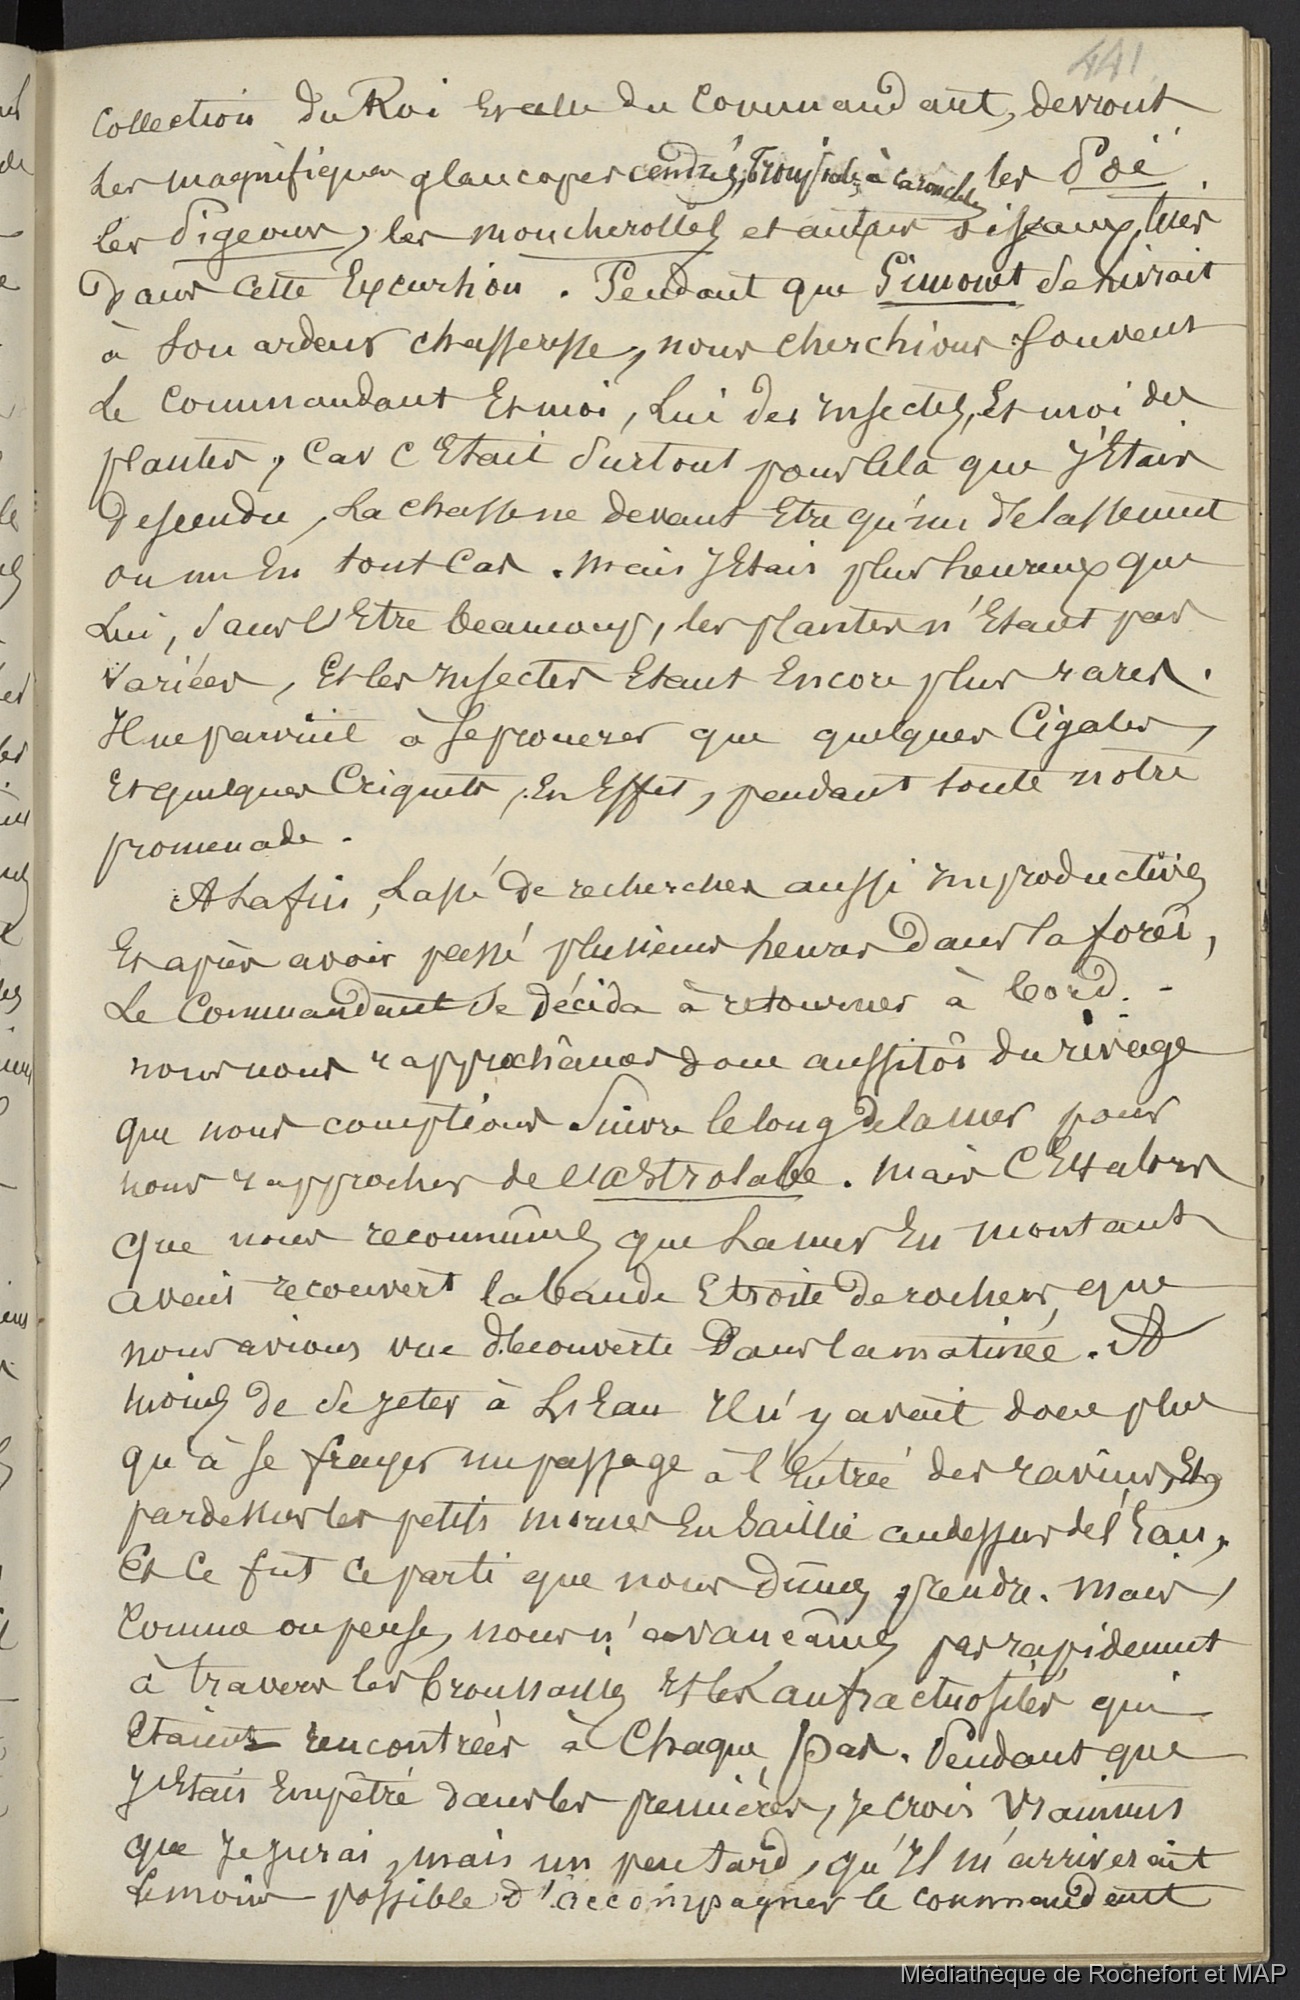 441
Collection du Roi et celle du Commandant, devront
les magnifiques glaucopes cendrés, à caroncules les Poë
les Pigeons, les moucherolles et autres oiseaux, tués
dans cette Excursion. Pendant que Simonet se livrait
à son ardeur chasseresse, nous cherchions souvent
Le Commandant Et moi, Lui des insectes, Et moi des
plantes, Car C'Etait surtout pour cela que J'Etais
Descendu, La chasse ne devant Etre qu'un délassement
ou un En tout Cas. Mais J'Etais plus heureux que
Lui, sans l'Etre beaucoup, les plantes n'Etant pas
variées, Et les insectes Etant Encore plus rares.
Il ne parvint à se procurer que quelques Cigales,
Et quelques Criquets, En Effet, pendant toute notre
promenade.
A la fin, Lassé de recherches aussi improductives
Et après avoir passé plusieurs heures Dans la forêt,
Le Commandant se décida à retourner à bord. -
nous nous rapprochâmes donc aussitôt du rivage
que nous comptions suivre le long de la mer pour
nous rapprocher de l'astrolabe. Mais C'Est alors
que nous reconnûmes que La mer En montant
avait recouvert la bande Etroite de rochers, que
nous avions vue découverte Dans la matinée. A
moins de se jeter à L'Eau Il n'y avait donc plus
qu'à se frayer un passage à l'Entrée des ravins, Et
par dessus les petits mornes En saillie au dessus de l'Eau,
Et ce fut ce parti que nous dûmes prendre. Mais,
Comme on pense, nous n'avançâmes pas rapidement
à travers les broussailles Et les anfractuosités qui
Etaient rencontrées à Chaque pas. Pendant que
J'Etais Empêtré dans les premières, je crois vraiment
que Je jurai, mais un peu tard, qu'Il m'arriverait
Le moins possible d'accompagner le commandant
Médiathèque de Rochefort et MAP